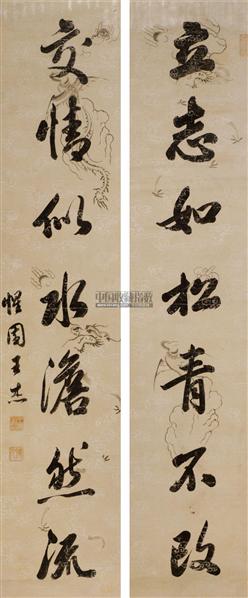 立志如松青不改
交情似水澹然流
惺园王杰
中国收藏指数